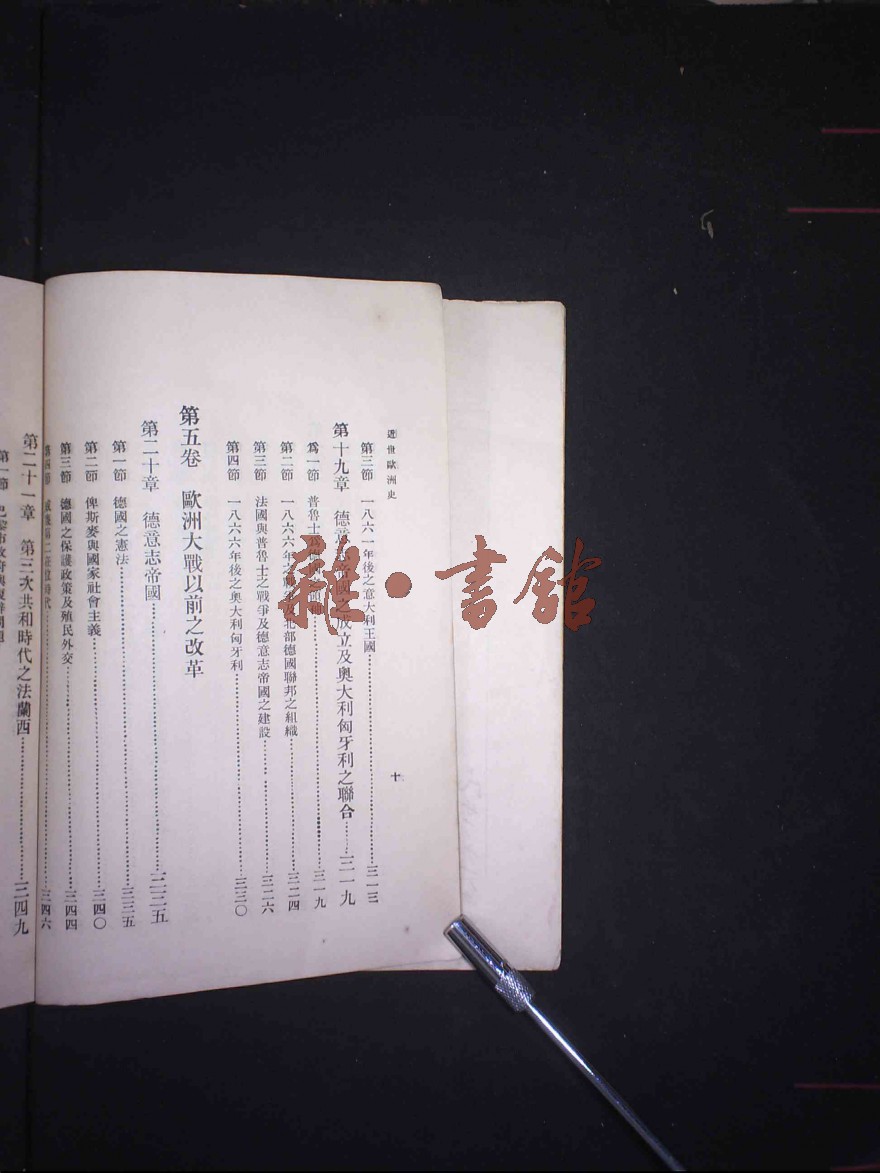 近世歐洲史
十
第三節 一八六一年後之意大利王國 三一三
第十九章 德意志帝國之成立及奧大利匈牙利之聯合 三一九
爲一節 普魯士爲 三一九
第二節 一八六六年之 北部德國聯邦之組織 三二四
第三節 法國與普魯士之戰爭及德意志帝國之建設 三二六
第四節 一八六六年後之奧大利匈牙利 三三〇
第五卷 歐洲大戰以前之改革
第二十章 德意志帝國 三三五
第一節 德國之憲法 三三五
第二節 俾斯麥與國家社會主義 三四〇
第三節 德國之保護政策及殖民外交 三四四
第四節 威廉第二在位時代 三四六
第二十一章 第三次共和時代之法蘭西 三四九
第一節 巴黎市政府與復辟問題
雜·書館